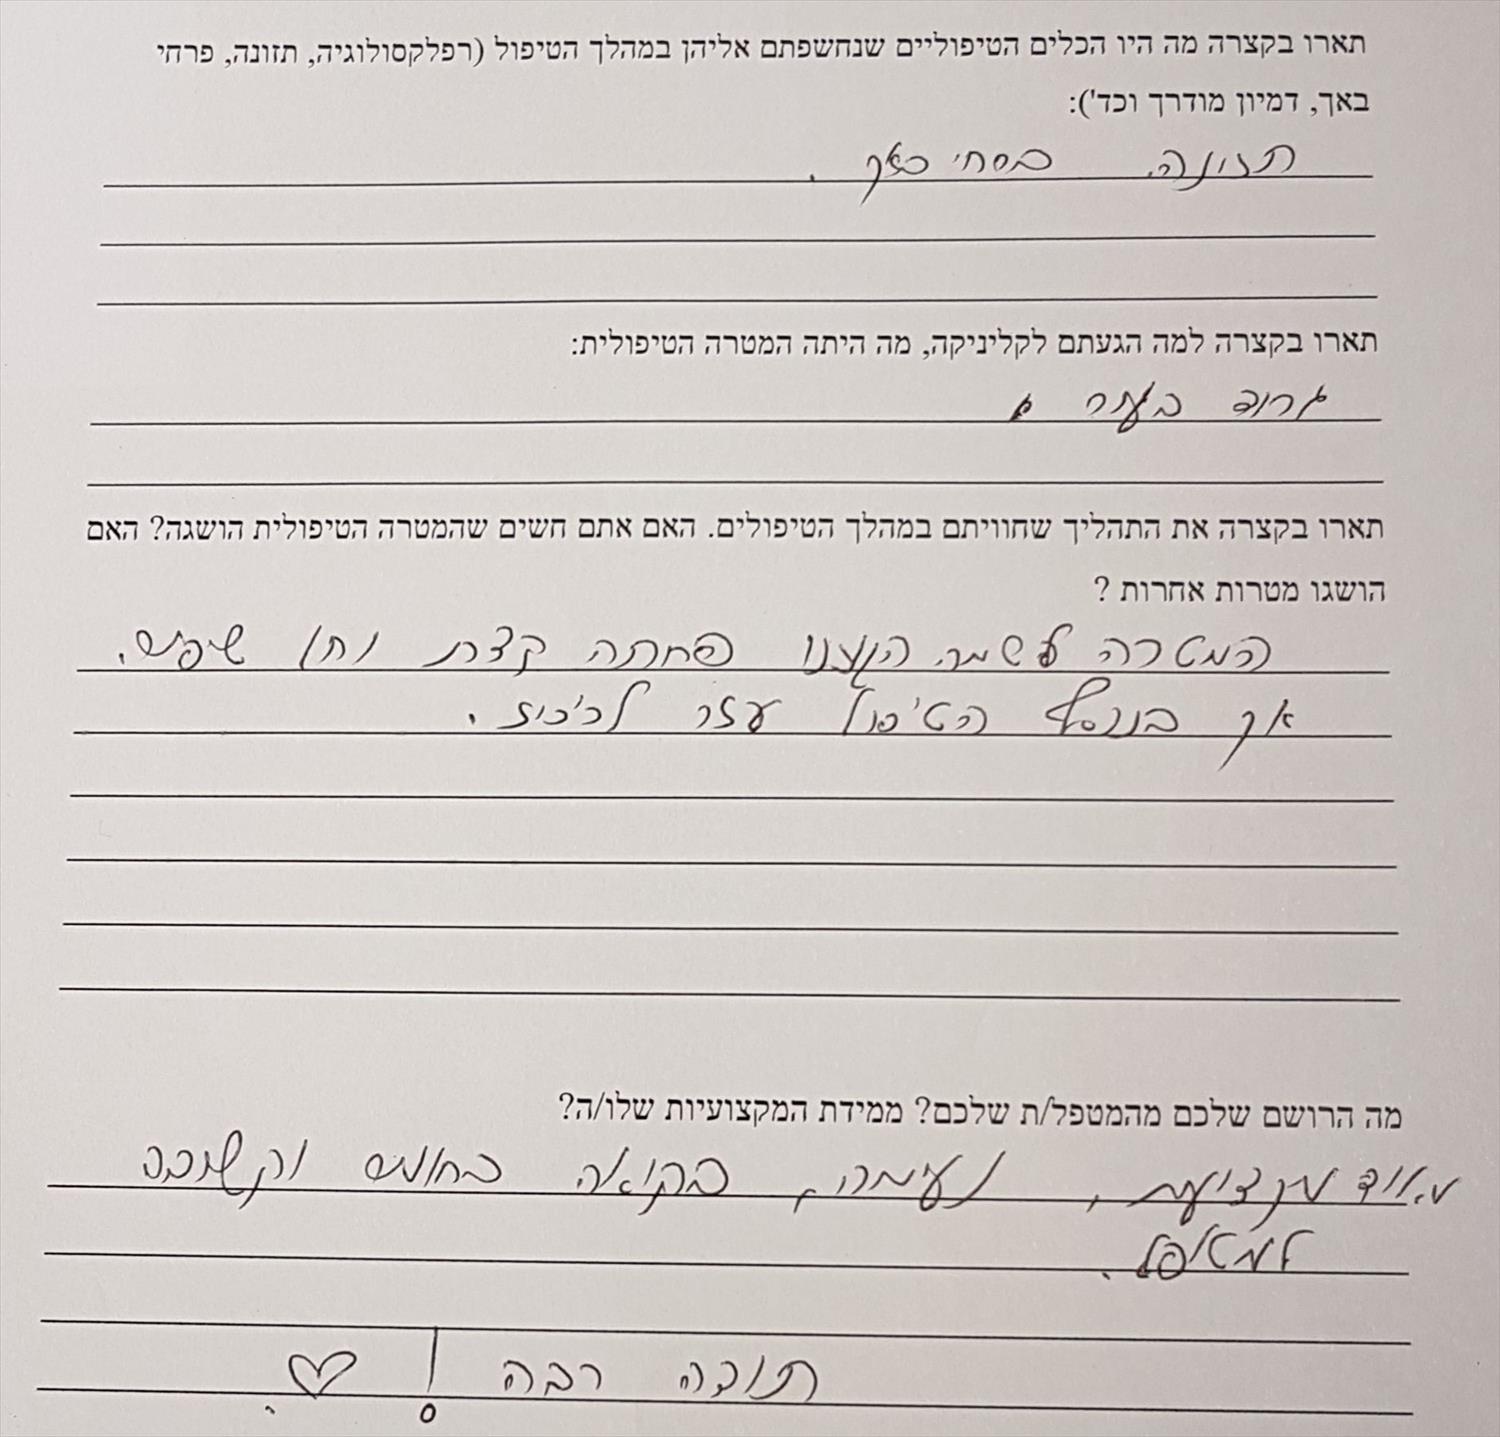 תארו בקצרה מה היו הכלים הטיפוליים שנחשפתם אליהן במהלך הטיפול (רפלקסולוגיה, תזונה, פרחי
באך, דמיון מודרך וכד'):
תזונה באך.
תארו בקצרה למה הגעתם לקליניקה, מה היתה המטרה הטיפולית:
גרוד בעור
תארו בקצרה את התהליך שחוויתם במהלך הטיפולים. האם אתם חשים שהמטרה הטיפולית הושגה? האם
הושגו מטרות אחרות ?
המטרה לשמה הגענו פחתה קצת
אך בנוסף הטיפול עזר לריכוז.
מה הרושם שלכם מהמטפל/ת שלכם? ממידת המקצועיות שלו/ה?
מאוד מקצועית, נעימה, בקיאה בחומר וקשובה
למטופל.
תודה רבה !